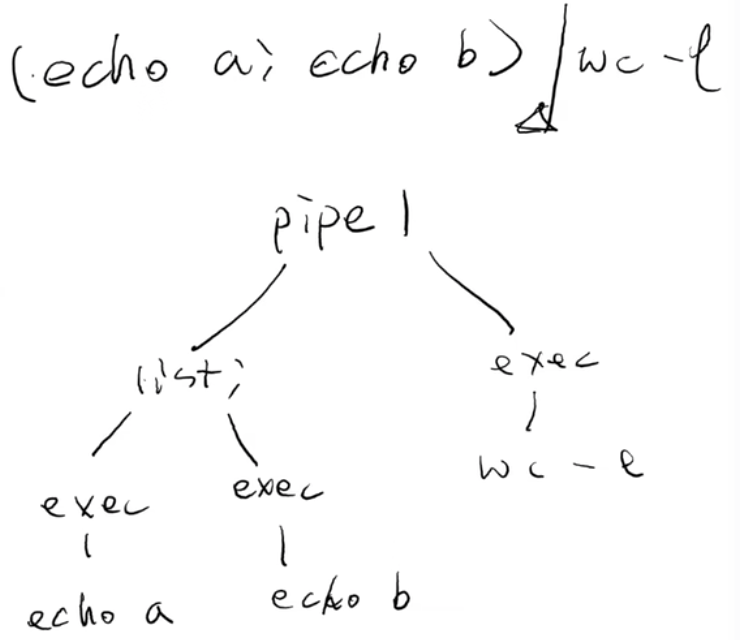 (echo a; echo b) | wc -l
pipe |
list ;
exec
exec
exec
wc -l
echo a
echo b